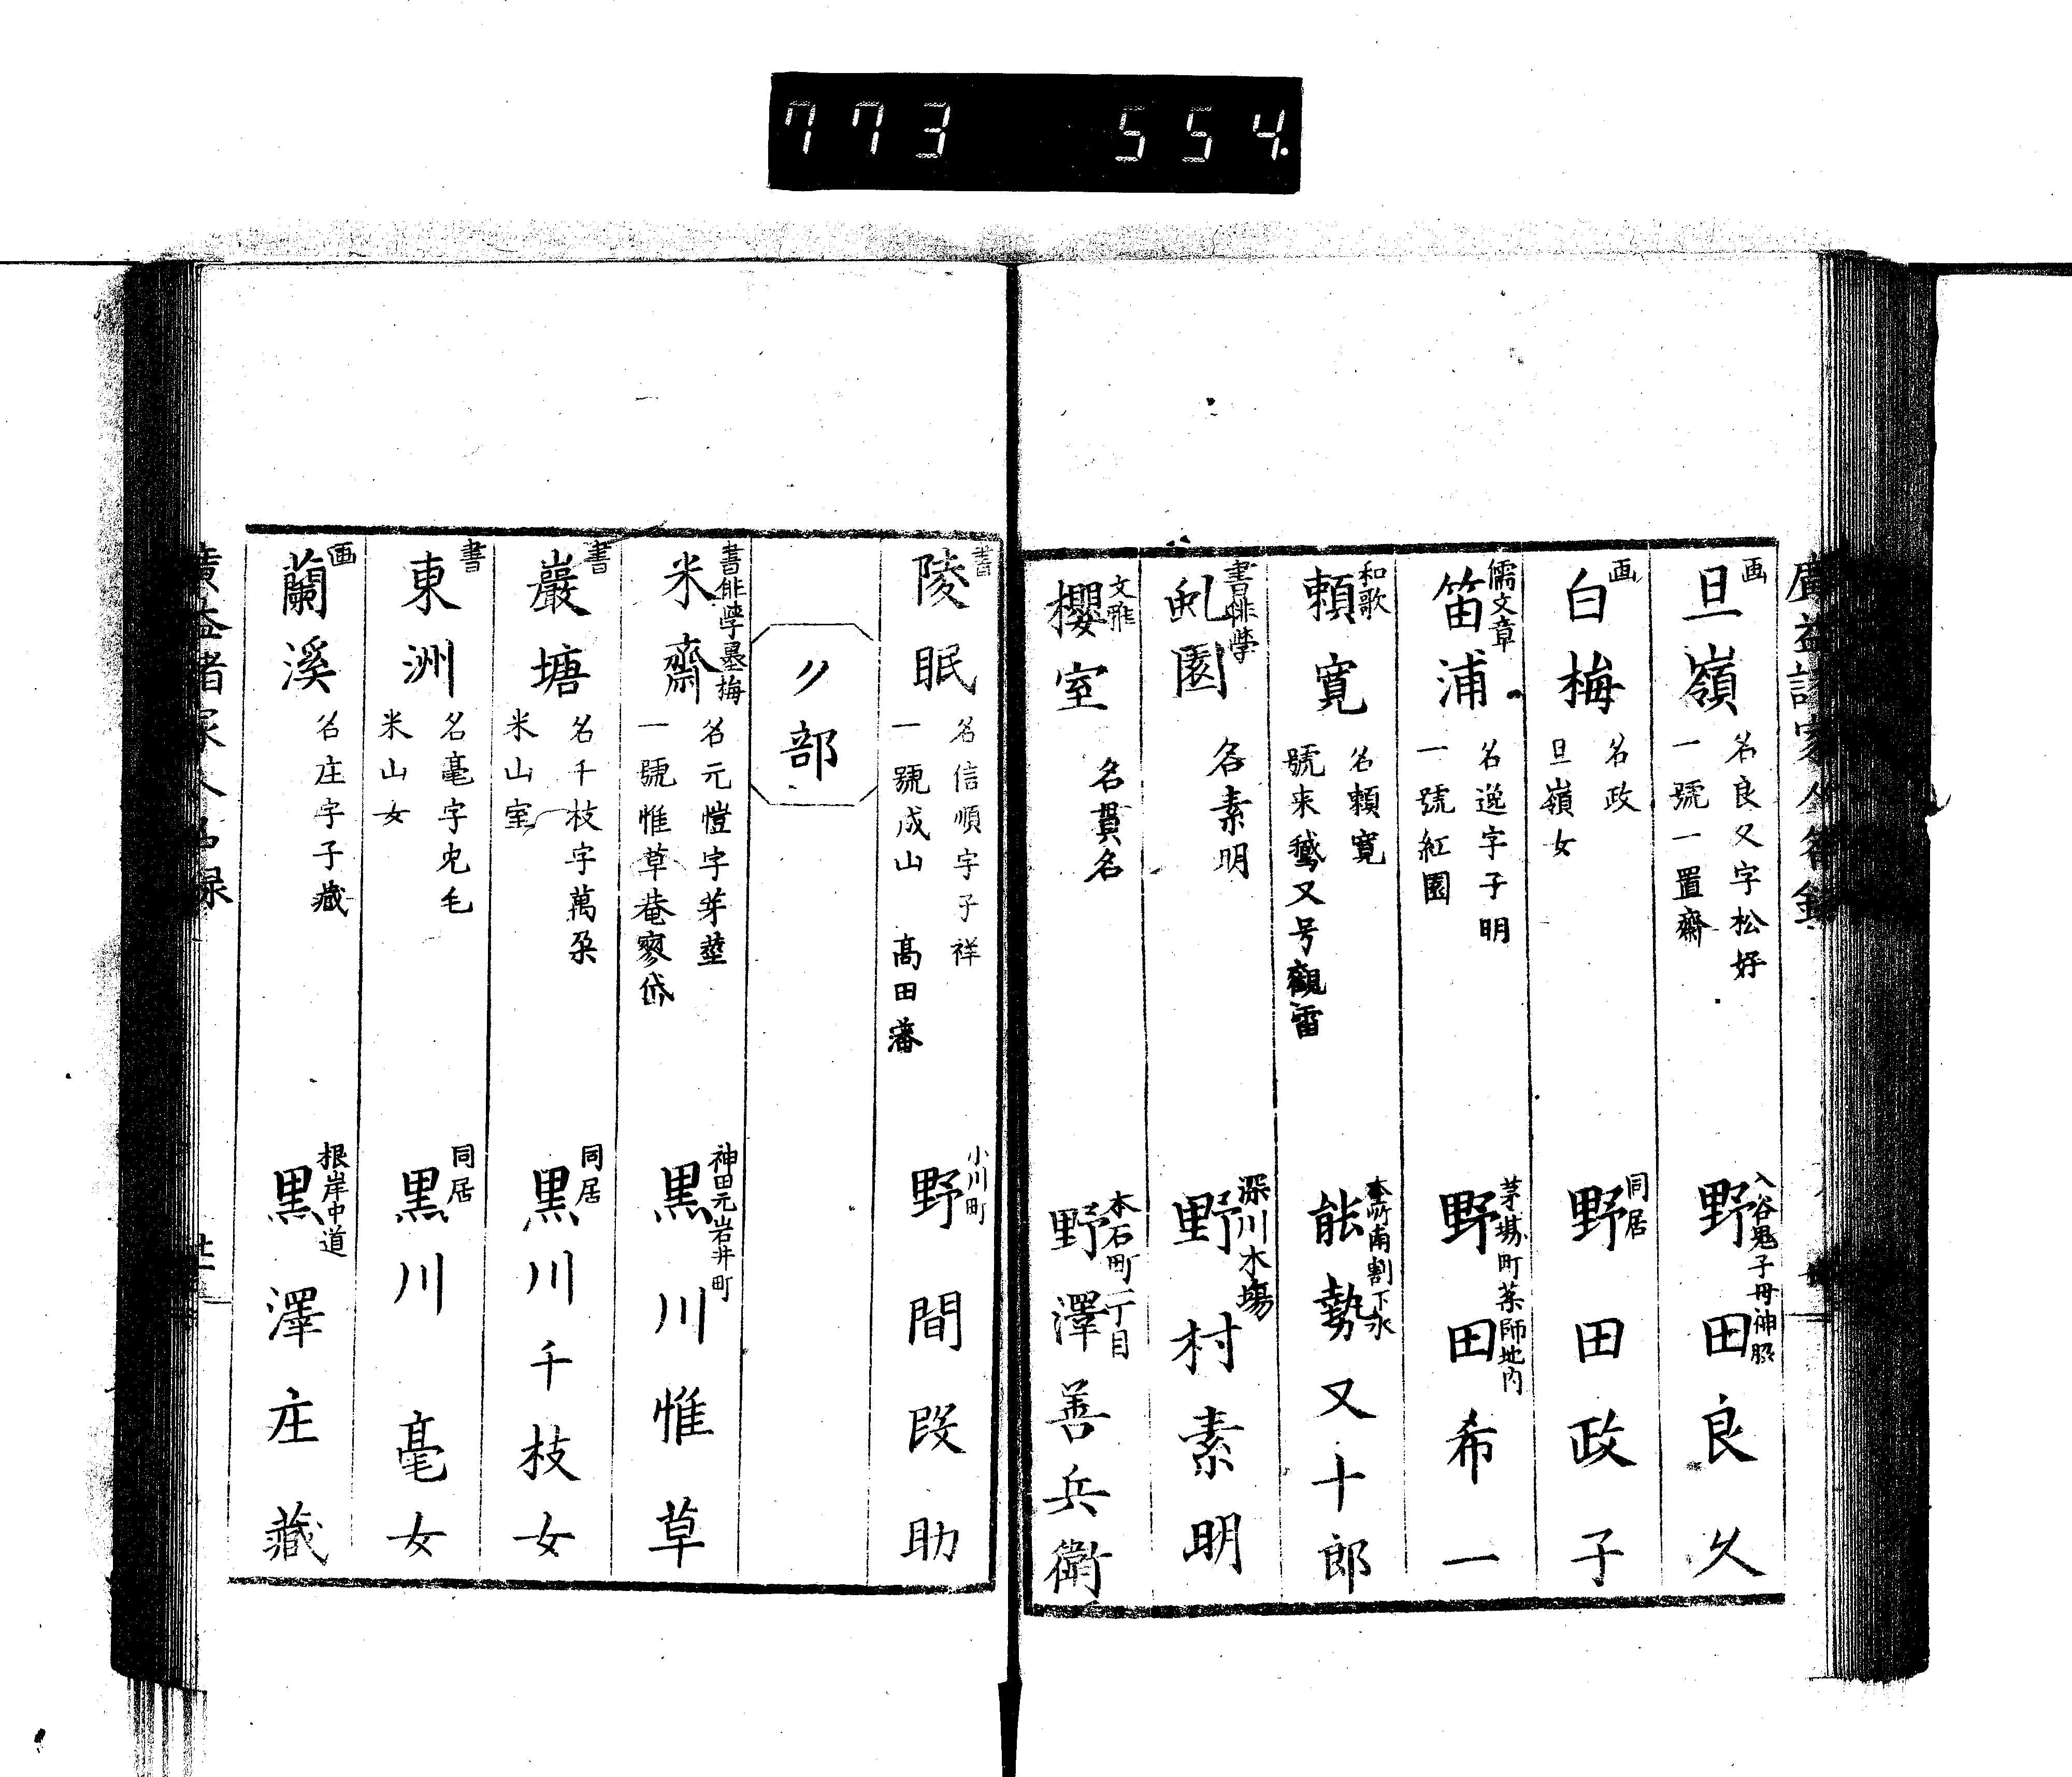 773 554
画
旦嶺
名良久字松好
一號一置齋
入谷鬼子母神脇
野田良久
画
白梅
名政
旦嶺女
同居
野田政子
儒文章
笛浦
名逸字子明
一號紅園
茅場町薬師地内
野田希一
和歌
頼寛
名頼寛
號来鵞又号觀雷
本所南割下水
能勢又十郎
書俳學
園
名素明
深川木場
野村素明
文雅
櫻室
名貫名
本石町二丁目
野澤善兵衛
書
陵眠
名信順字子祥
一號成山 髙田藩
小川町
野間助
部
書俳學墨梅
米齋
名元愷字芽莖
一號惟草菴寥岱
神田元岩井町
黒川惟草
書
巌塘
名千枝字萬朶
米山室
同居
黒川千枝女
書
東洲
名毫字兎毛
米山女
同居
黒川毫女
画
蘭溪
名庄字子藏
根岸中道
黒澤庄藏
廣益諸家人名録